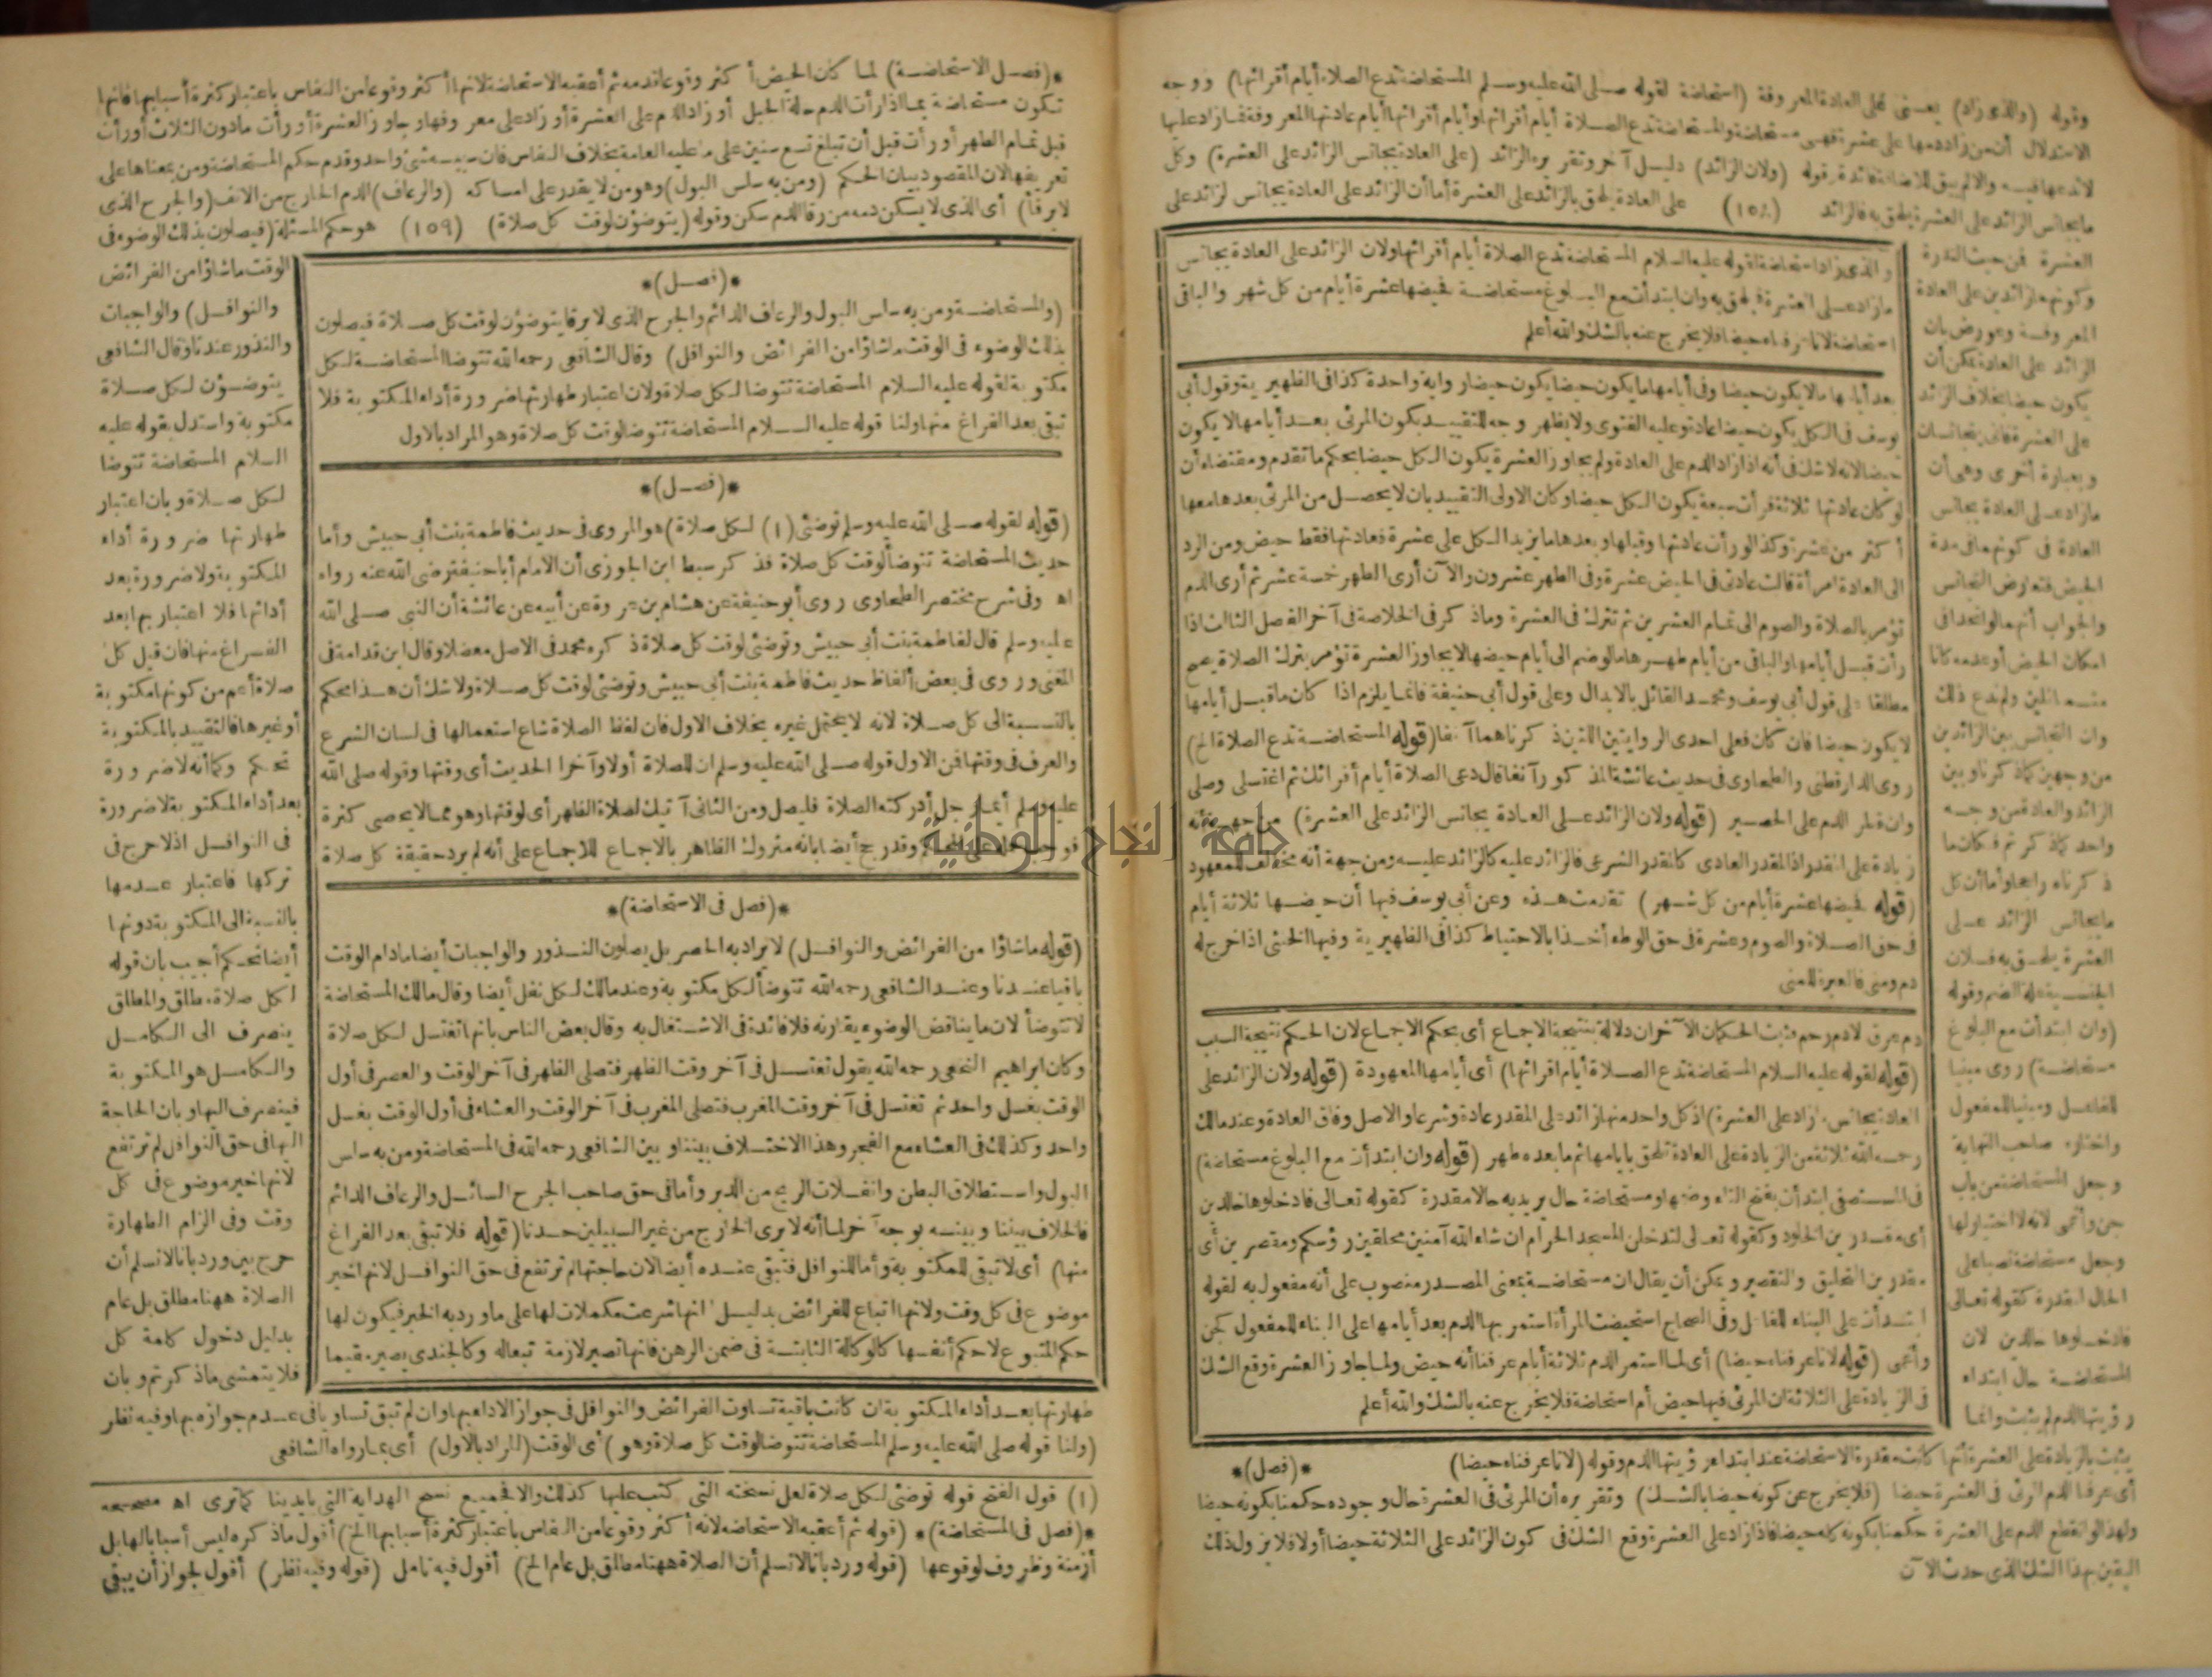 وقوله (والذى زاد) يعنى على العادة المعروفة (استحاضة لقوله صلى الله عليه وسلم المستحاضة تدع الصلاة أيام أقرائها) ووجه
الاستدلال أن من زاد دمها على عشرة فهى مستحاضة والمستحاضة تدع الصلاة أيام أقرائها وأيام أقرائها أيام عادتها المعروفة فما زاد عليها
لا تدعها فيه والا لم يبق للاضافة فائدة وقوله (ولان الزائد) دليل آخر وتقريره الزائد (على العادة يجانس الزائد على العشرة) وكل
ما يجانس الزائد على العشرة يلحق به فالزائد (١٥٨) على العادة يلحق بالزائد على العشرة أما أن الزائد على العادة يجانس الزائد على
العشرة فمن حيث الندرة
وكونهما زائدين على العادة
المعروفة وعورض بان
الزائد على العادة يمكن أن
يكون حيضا بخلاف الزائد
على العشرة فانى يتجانسان
وبعبارة أخرى وهى أن
ما زاد على العادة يجانس
العادة فى كونهما فى مدة
الحيض فتعارض التجانس
والجواب أنهما لو اتحدا فى
امكان الحيض أو عدمه كانا
متماثلين ولم ندع ذلك
وان التجانس بين الزائدين
من وجهين كما ذكرنا وبين
الزائد والعادة من وجه
واحد كما ذكرتم فكان ما
ذكرناه راجحا وأما أن كل
ما يجانس الزائد على
العشرة يلحق به فلان
الجنسية علة الضم وقوله
(وان ابتدأت مع البلوغ
مستحاضة) روى مبنيا
للفاعل ومبنيا للمفعول
واختاره صاحب النهاية
وجعل المستحاضة من باب
جن وأغمى لانه لا اختيار لها
وجعل مستحاضة نصبا على
الحال المقدرة كقوله تعالى
فادخلوها خالدين لان
المستحاضة حال ابتداء
رؤيتها الدم لم يثبت وانما
يثبت بالزيادة على العشرة أنها كانت مقدرة الاستحاضة عند ابتداء رؤيتها الدم وقوله (لانا عرفناه حيضا)
أى عرفنا الدم المرئى فى العشرة حيضا (فلا يخرج عن كونه حيضا بالشك) وتقريره أن المرئى فى العشرة حال وجوده حكمنا بكونه حيضا
ولهذا لو انقطع الدم على العشرة حكمنا بكونه كله حيضا فاذا زاد على العشرة وقع الشك فى كون الزائد على الثلاثة حيضا أو لا فلا يزول ذلك
اليقين بهذا الشك الذى حدث الآن
والذى زاد استحاضة لقوله عليه السلام المستحاضة تدع الصلاة أيام أقرائها ولان الزائد على العادة يجانس
ما زاد على العشرة فيلحق به وان ابتدأت مع البلوغ مستحاضة فحيضها عشرة أيام من كل شهر والباقى
استحاضة لانا عرفناه حيضا فلا يخرج عنه بالشك والله أعلم
بعد أيامها ما لا يكون حيضا وفى أيامها ما يكون حيضا يكون حيضا رواية واحدة كذا فى الظهيرية وقول أبى
يوسف فى الكل يكون حيضا عادة وعليه الفتوى ولا يظهر وجه للتقييد بكون المرئى بعد أيامها لا يكون
حيضا لانه لا شك فى أنه اذا زاد الدم على العادة ولم يجاوز العشرة يكون الكل حيضا بحكم ما تقدم ومقتضاه أن
لو كان عادتها ثلاثة فرأت سبعة يكون الكل حيضا وكان الاولى التقييد بان لا يحصل من المرئى بعدها معها
أكثر من عشرة وكذا لو رأت عادتها وقبلها وبعدها ما يزيد الكل على عشرة فعادتها فقط حيض ومن الرد
الى العادة امرأة قالت عادتى فى الحيض عشرة وفى الطهر عشرون والآن أرى الطهر خمسة عشر ثم أرى الدم
تؤمر بالصلاة والصوم الى تمام العشرين ثم تترك فى العشرة وما ذكر فى الخلاصة فى آخر الفصل الثالث اذا
رأت قبل أيامها والباقى من أيام طهرها ما لو ضم الى أيام حيضها لا يجاوز العشرة تؤمر بترك الصلاة يصح
مطلقا على قول أبى يوسف ومحمد القائل بالابدال وعلى قول أبى حنيفة فانما يلزم اذا كان ما قبل أيامها
لا يكون حيضا فان كان فعلى احدى الروايتين اللتين ذكرناهما آنفا (قوله المستحاضة تدع الصلاة الخ)
روى الدارقطنى والطحاوى فى حديث عائشة المذكور آنفا قال دعى الصلاة أيام أقرائك ثم اغتسلى وصلى
وان قطر الدم على الحصير (قوله ولان الزائد على العادة يجانس الزائد على العشرة) من جهة أنه
زيادة على المقدر اذ المقدر العادى كالمقدر الشرعى فالزائد عليه كالزائد عليه ومن جهة أنه مخالف للمعهود
(قوله فحيضها عشرة أيام من كل شهر) تقدمت هذه وعن أبى يوسف فيها أن حيضها ثلاثة أيام
فى حق الصلاة والصوم وعشرة فى حق الوطء أخذا بالاحتياط كذا فى الظهيرية وفيها الخنثى اذا خرج له
دم ومنى فالعبرة للمنى
دم عرق لا دم رحم فثبت الحكمان الآخران دلالة بنتيجة الاجماع أى بحكم الاجماع لان الحكم نتيجة السبب
(قوله لقوله عليه السلام المستحاضة تدع الصلاة أيام اقرائها) أى أيامها المعهودة (قوله ولان الزائد على
العادة يجانس ما زاد على العشرة) اذ كل واحد منها زائد على المقدر عادة وشرعا والاصل وفاق العادة وعند مالك
رحمه الله ثلاثة من الزيادة على العادة تلحق بايامها ثم ما بعده طهر (قوله وان ابتدأت مع البلوغ مستحاضة)
فى المستصفى ابتدأت بفتح التاء وضمها ومستحاضة حال يريد به حالا مقدرة كقوله تعالى فادخلوها خالدين
أى مقدرين الخلود وكقوله تعالى لتدخلن المسجد الحرام ان شاء الله آمنين محلقين رؤسكم ومقصرين أى
مقدرين التحليق والتقصير ويمكن أن يقال ان مستحاضة بمعنى المصدر منصوب على أنه مفعول به لقوله
ابتدأت على البناء للفاعل وفى الصحاح استحيضت المرأة استمر بها الدم بعد أيامها على البناء للمفعول كجن
وأغمى (قوله لانا عرفناه حيضا) أى لما استمر الدم ثلاثة أيام عرفنا أنه حيض ولما جاوز العشرة وقع الشك
فى الزيادة على الثلاثة ان المرئى فيها حيض أم استحاضة فلا يخرج عنه بالشك والله أعلم
*(فصل)*
*(فصل الاستحاضة) لما كان الحيض أكثر وقوعا قدمه ثم أعقبه الاستحاضة لانها أكثر وقوعا من النفاس باعتبار كثرة أسبابها فانها
تكون مستحاضة بما اذا رأت الدم حالة الحبل أو زاد الدم على العشرة أو زاد على معروفها وجاوز العشرة أو رأت ما دون الثلاث أو رأت
قبل تمام الطهر أو رأت قبل أن تبلغ تسع سنين على ما عليه العامة بخلاف النفاس فان سببه شئ واحد وقدم حكم المستحاضة ومن بمعناها على
تعريفها لان المقصود بيان الحكم (ومن به سلس البول) وهو من لا يقدر على امساكه (والرعاف) الدم الخارج من الانف (والجرح الذى
لا يرقأ) أى الذى لا يسكن دمه من رقأ الدم سكن وقوله (يتوضؤن لوقت كل صلاة) (١٥٩) هو حكم المسئلة (فيصلون بذلك الوضوء فى
الوقت ما شاؤا من الفرائض
والنوافل) والواجبات
والنذور عندنا وقال الشافعى
يتوضؤن لكل صلاة
مكتوبة واستدل بقوله عليه
السلام المستحاضة تتوضأ
لكل صلاة وبان اعتبار
طهارتها ضرورة أداء
المكتوبة ولا ضرورة بعد
أدائها فلا اعتبار بها بعد
الفراغ منها فان قيل كل
صلاة أعم من كونها مكتوبة
أو غيرها فالتقييد بالمكتوبة
تحكم وكما أنه لا ضرورة
بعد أداء المكتوبة لا ضرورة
فى النوافل اذ لا حرج فى
تركها فاعتبار عدمها
بالنسبة الى المكتوبة دونها
أيضا تحكم أجيب بان قوله
لكل صلاة مطلق والمطلق
ينصرف الى الكامل
والكامل هو المكتوبة
فينصرف اليها وبان الحاجة
اليها فى حق النوافل لم ترتفع
لانها خير موضوع فى كل
وقت وفى الزام الطهارة
حرج بين ورد بانا لا نسلم أن
الصلاة ههنا مطلق بل عام
بدليل دخول كلمة كل
فلا يتمشى ما ذكرتم وبان
طهارتها بعد أداء المكتوبة ان كانت باقية تساوت الفرائض والنوافل فى جواز الاداء بها وان لم تبق تساويا فى عدم جوازه بها وفيه نظر
(ولنا قوله صلى الله عليه وسلم المستحاضة تتوضأ لوقت كل صلاة وهو) أى الوقت (المراد بالاول) أى بما رواه الشافعى
*(فصل)*
(والمستحاضة ومن به سلس البول والرعاف الدائم والجرح الذى لا يرقأ يتوضؤن لوقت كل صلاة فيصلون
بذلك الوضوء فى الوقت ما شاؤا من الفرائض والنوافل) وقال الشافعى رحمه الله تتوضأ المستحاضة لكل
مكتوبة لقوله عليه السلام المستحاضة تتوضأ لكل صلاة ولان اعتبار طهارتها ضرورة أداء المكتوبة فلا
تبقى بعد الفراغ منها ولنا قوله عليه السلام المستحاضة تتوضأ لوقت كل صلاة وهو المراد بالاول
*(فصل)*
(قوله لقوله صلى الله عليه وسلم توضئى (١) لكل صلاة) هو المروى فى حديث فاطمة بنت أبى حبيش وأما
حديث المستحاضة تتوضأ لوقت كل صلاة فذكر سبط ابن الجوزى أن الامام أبا حنيفة رضى الله عنه رواه
اه وفى شرح مختصر الطحاوى روى أبو حنيفة عن هشام بن عروة عن أبيه عن عائشة أن النبى صلى الله
عليه وسلم قال لفاطمة بنت أبى حبيش وتوضئى لوقت كل صلاة ذكره محمد فى الاصل معضلا وقال ابن قدامة فى
المغنى وروى فى بعض ألفاظ حديث فاطمة بنت أبى حبيش وتوضئى لوقت كل صلاة ولا شك أن هذا محكم
بالنسبة الى كل صلاة لانه لا يحتمل غيره بخلاف الاول فان لفظ الصلاة شاع استعمالها فى لسان الشرع
والعرف فى وقتها فمن الاول قوله صلى الله عليه وسلم ان للصلاة أولا وآخرا الحديث أى وقتها وقوله صلى الله
عليه وسلم أيما رجل أدركته الصلاة فليصل ومن الثانى آتيك لصلاة الظهر أى لوقتها وهو مما لا يحصى كثرة
فوجب حمله على المحكم وقد رجح أيضا بانه متروك الظاهر بالاجماع للاجماع على أنه لم يرد حقيقة كل صلاة
*(فصل فى الاستحاضة)*
(قوله ما شاؤا من الفرائض والنوافل) لا يراد به الحصر بل يصلون النذور والواجبات أيضا ما دام الوقت
باقيا عندنا وعند الشافعى رحمه الله تتوضأ لكل مكتوبة وعند مالك لكل نفل أيضا وقال مالك المستحاضة
لا تتوضأ لان ما يناقض الوضوء يقارنه فلا فائدة فى الاشتغال به وقال بعض الناس بانها تغتسل لكل صلاة
وكان ابراهيم النخعى رحمه الله يقول تغتسل فى آخر وقت الظهر فتصلى الظهر فى آخر الوقت والعصر فى أول
الوقت بغسل واحد ثم تغتسل فى آخر وقت المغرب فتصلى المغرب فى آخر الوقت والعشاء فى أول الوقت بغسل
واحد وكذلك فى العشاء مع الفجر وهذا الاختلاف بيننا وبين الشافعى رحمه الله فى المستحاضة ومن به سلس
البول واستطلاق البطن وانفلات الريح من الدبر وأما فى حق صاحب الجرح السائل والرعاف الدائم
فالخلاف بيننا وبينه بوجه آخر لما أنه لا يرى الخارج من غير السبيلين حدثا (قوله فلا تبقى بعد الفراغ
منها) أى لا تبقى للمكتوبة وأما للنوافل فتبقى عنده أيضا لان حاجتها لم ترتفع فى حق النوافل لانها خير
موضوع فى كل وقت ولانها اتباع للفرائض بدليل انها شرعت مكملات لها على ما ورد به الخبر فيكون لها
حكم المتبوع لا حكم أنفسها كالوكالة الثابتة فى ضمن الرهن فانها تصير لازمة تبعا له وكالجندى يصير مقيما
(١) قول الفتح قوله توضئى لكل صلاة لعل نسخته التى كتب عليها كذلك والا فجميع نسخ الهداية التى بايدينا كما ترى اه مصححه
*(فصل فى المستحاضة)* (قوله ثم أعقبه الاستحاضة لانه أكثر وقوعا من النفاس باعتبار كثرة أسبابها الخ) أقول ما ذكره ليس أسبابا لها بل
أزمنة وظروف لوقوعها (قوله ورد بانا لا نسلم أن الصلاة ههنا مطلق بل عام الخ) أقول فيه تأمل (قوله وفيه نظر) أقول لجواز أن يبقى
جامعة النجاح الوطنية